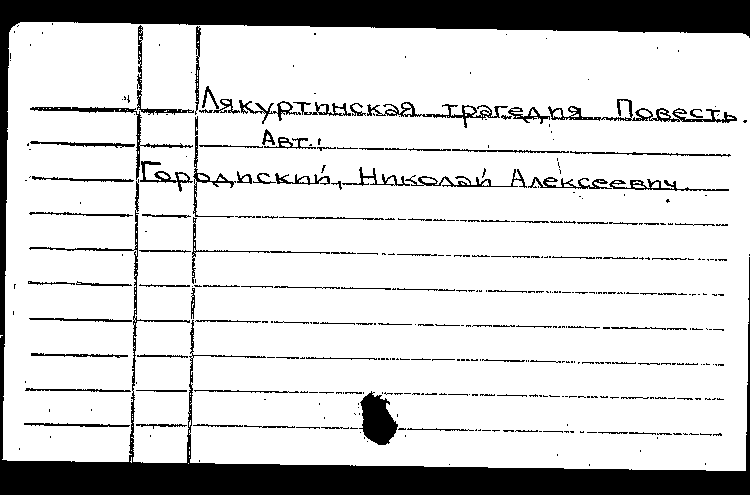 Лякуртинская трагедия Повесть.
Авт.:
Городиский, Николай Алексеевич.